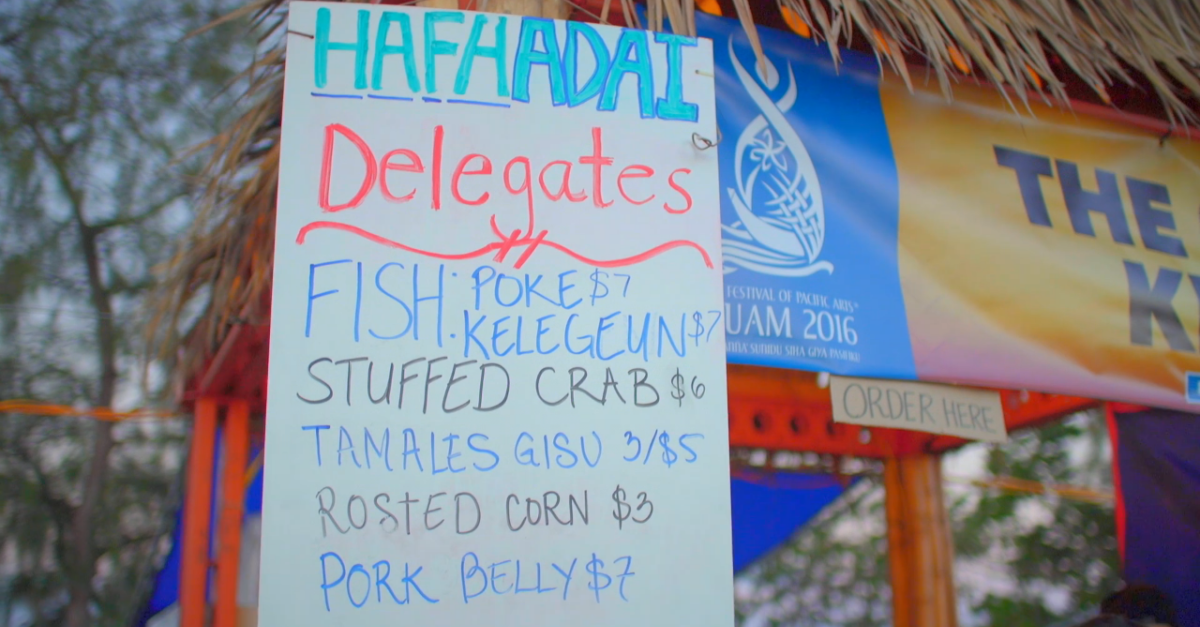 HAFAADAI
Delegates
FISH: POKE $7
KELEGEUN $7
STUFFED CRAB $6
TAMALES GISU 3/$5
ROSTED CORN $3
PORK BELLY $7
FESTIVAL OF PACIFIC ARTS
UAM 2016
THE
K
ORDER HERE